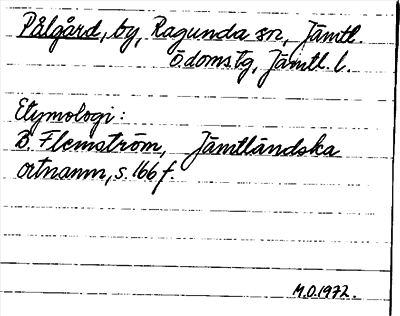 Pålgård, by, Ragunda sn, Jämtl.
ö. domstg, Jämtl. l.
Etymologi:
B. Flemström, Jämtländska
ortnamn, s. 166 f.
M.O. 1972.